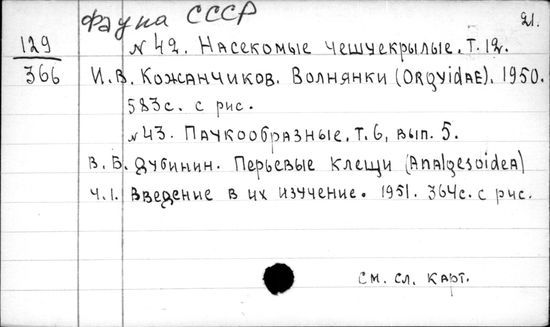 Фауна СССР
21.
129
366
№42. Насекомые чешуекрылые. Т. 12.
И. В. Кожанчиков. Волнянки (Orgyidae). 1950.
583с. с рис.
№43. Паукообразные. Т. 6, вып. 5.
В. Б. Дубинин. Перьевые клещи (Analgesoidea)
Ч. 1. Введение в их изучение. 1951. 364с. с рис.
см. сл. карт.